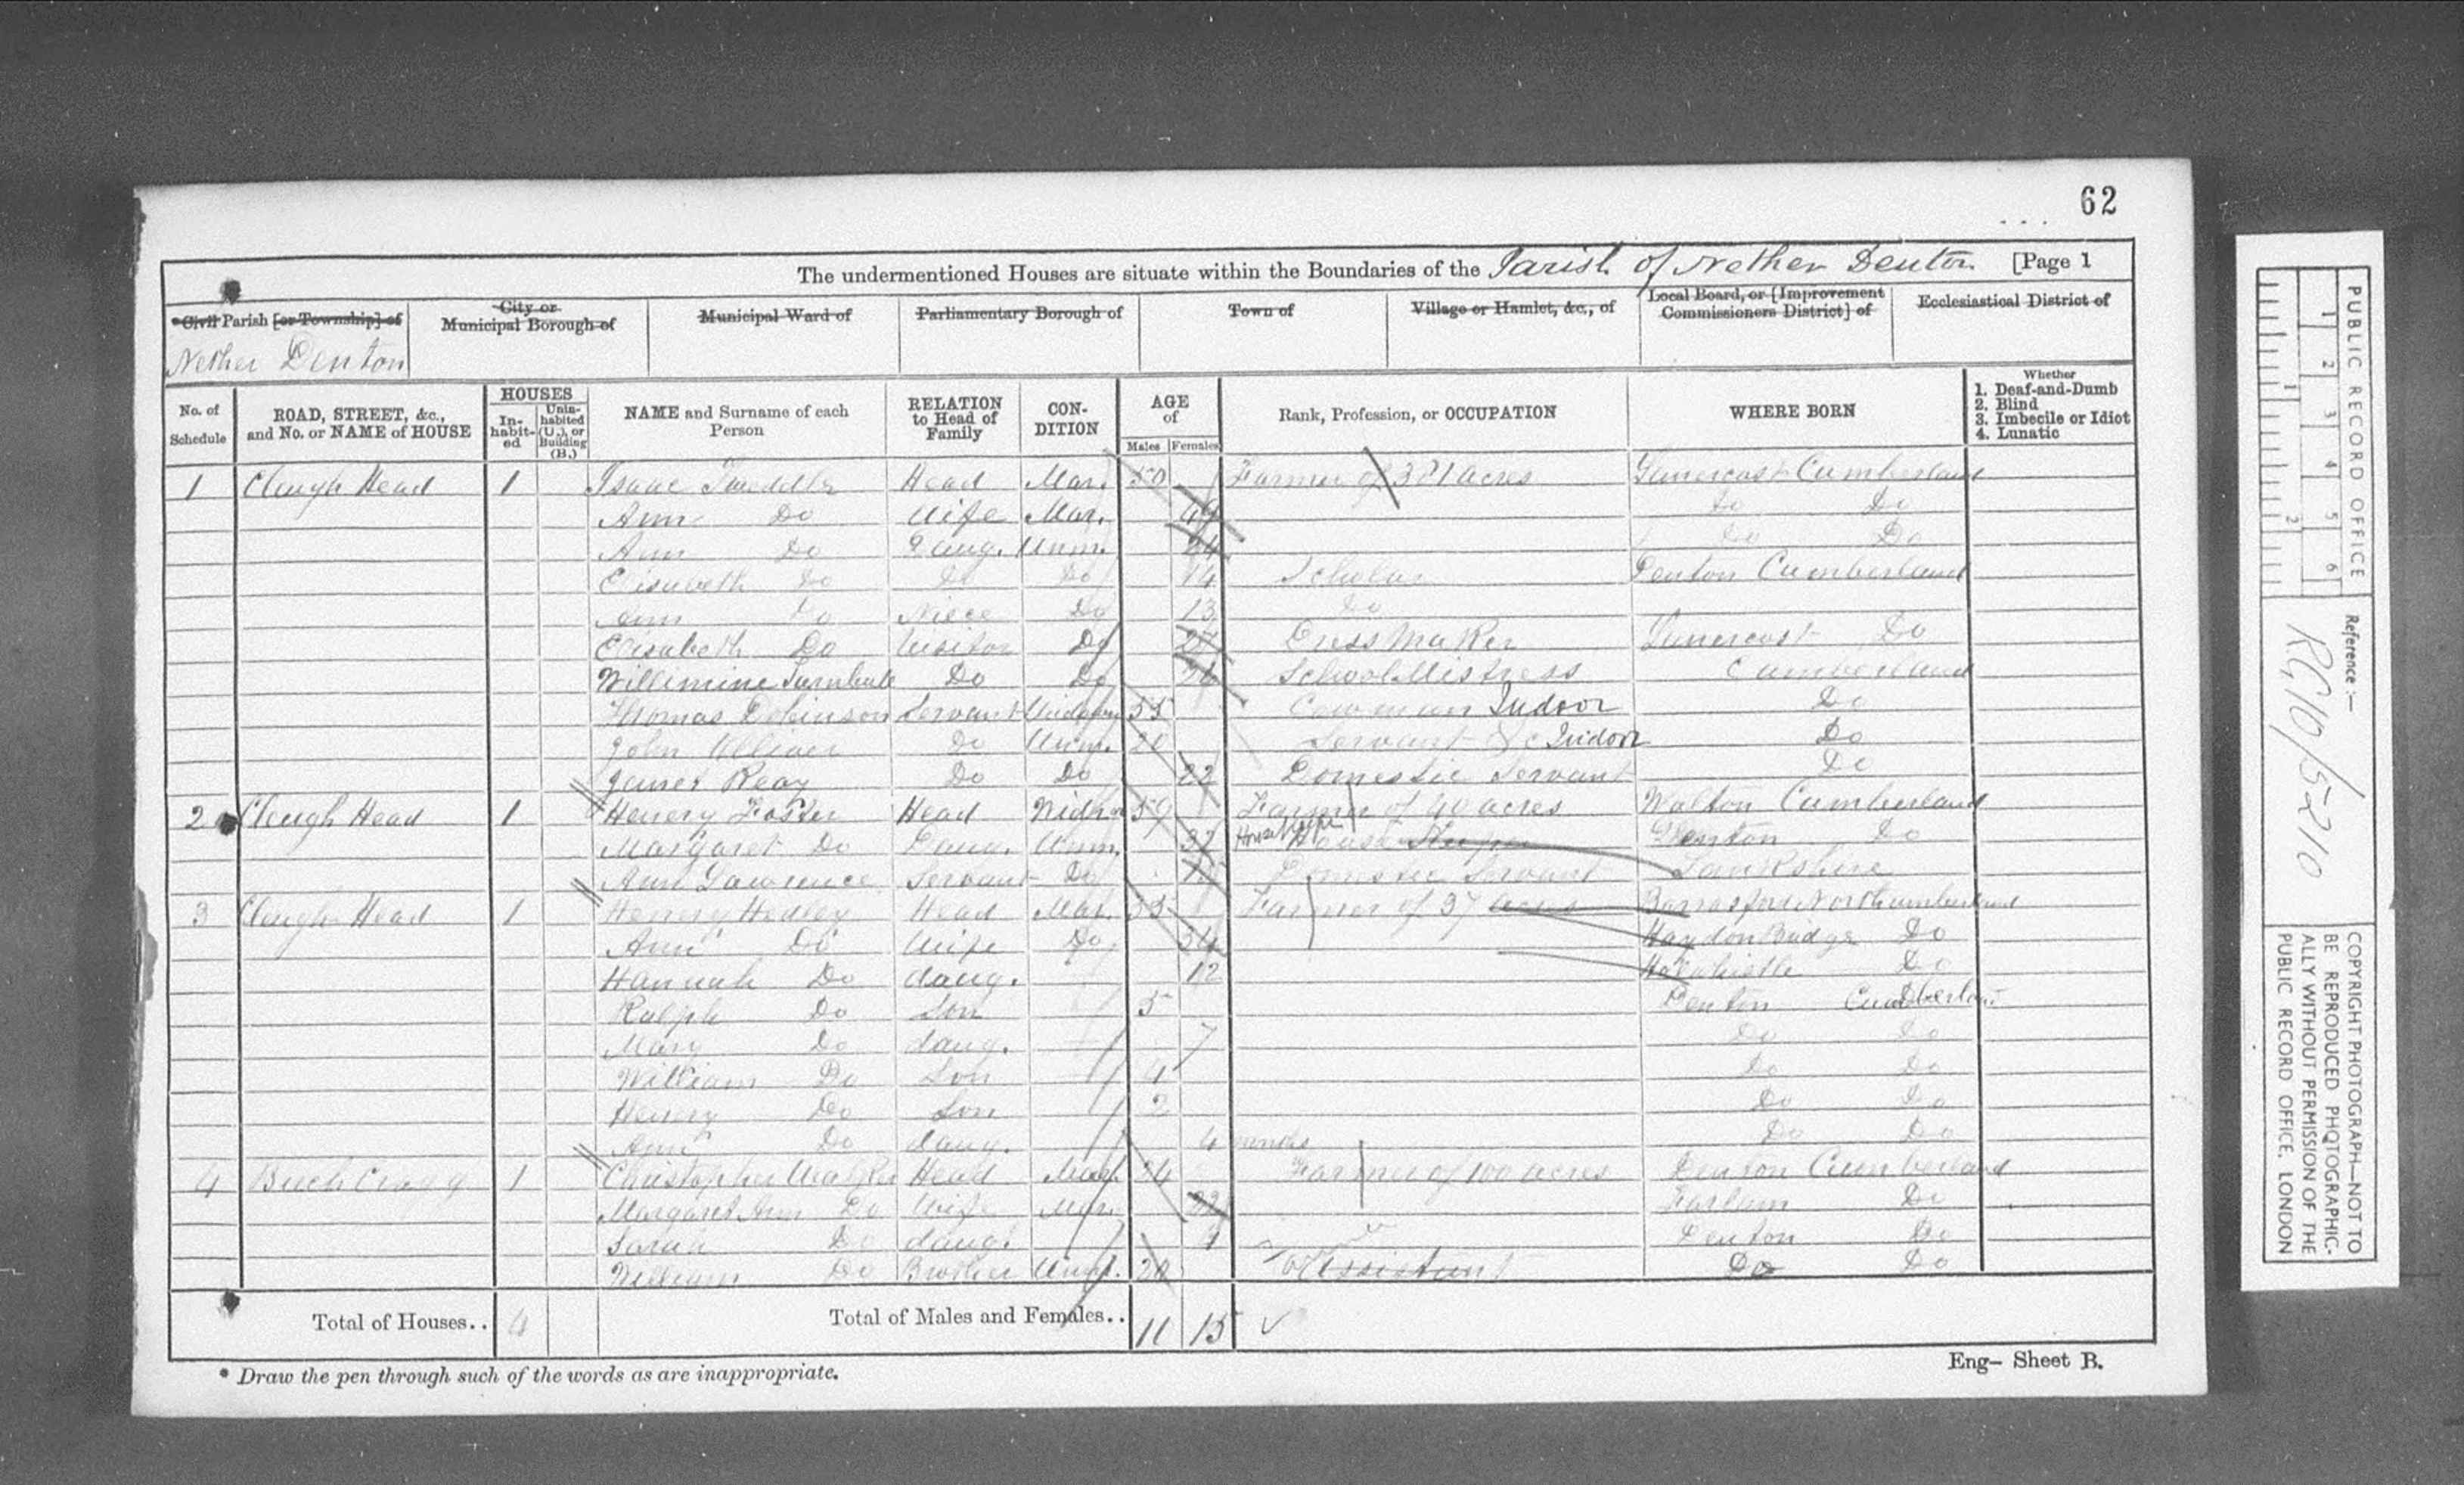 62
The undermentioned Houses are situate within the Boundaries of the Parish of Nether Denton [Page 1
*Civil Parish [or Township] of
City or Municipal Borough of
Municipal Ward of
Parliamentary Borough of
Town of
Village or Hamlet, &c., of
Local Board, or [Improvement Commissioners District] of
Ecclesiastical District of
Nether Denton
No. of Schedule
ROAD, STREET, &c., and No. or NAME of HOUSE
HOUSES
In-habit-ed
Unin-habited (U.), or Building (B.)
NAME and Surname of each Person
RELATION to Head of Family
CON-DITION
AGE of
Males Females
Rank, Profession, or OCCUPATION
WHERE BORN
Whether
1. Deaf-and-Dumb
2. Blind
3. Imbecile or Idiot
4. Lunatic
1 Cleugh Head 1 Isaac Head Mar. 50 Farmer of 381 acres Lanercost Cumberland
Ann Do Wife Mar. 49 Do Do
Ann Do Daug. Unm. 24 Do Do
Elisabeth Do Do Do 14 Scholar Denton Cumberland
Ann Do Niece Do 13 Do
Elisabeth Do Visitor Do 27 Dress Maker Lanercost Do
Willimine Turnbull Do Do 26 School Mistress Cumberland
Thomas Servant 55 Cowman Indoor Do
John Do Unm. 20 Servant &c Indoor Do
Reay Do Do 22 Domestic Servant Do
2 Cleugh Head 1 Henery Foster Head 59 Farmer of 40 acres Walton Cumberland
Margaret Do Daug. Unm. 32 House Keeper Denton Do
Ann Lawrence Servant Do Domestic Servant
3 Cleugh Head 1 Henery Hedley Head Mar. 35 Farmer of 37 acres Barrasford Northumberland
Ann Do Wife Do 34 Haydon Bridge Do
Hannah Do daug. 12 Do
Ralph Do Son 5 Denton Cumberland
Mary Do daug. 7 Do Do
William Do Son 4 Do Do
Henery Do Son 2 Do Do
Ann Do daug. 4 months Do Do
4 1 Christopher Walker Head 24 Farmer of 100 acres Denton Cumberland
Margaret Ann Do Wife Mar. 22 Farlam Do
Sarah Do daug. Denton Do
William Do Brother 20 Assistant Do Do
Total of Houses.. 4 Total of Males and Females.. 11 15
* Draw the pen through such of the words as are inappropriate.
Eng- Sheet B.
PUBLIC RECORD OFFICE
1 2 3 4 5 6
1 2
Reference :-
RG10/5210
COPYRIGHT PHOTOGRAPH—NOT TO
BE REPRODUCED PHOTOGRAPHIC-
ALLY WITHOUT PERMISSION OF THE
PUBLIC RECORD OFFICE, LONDON